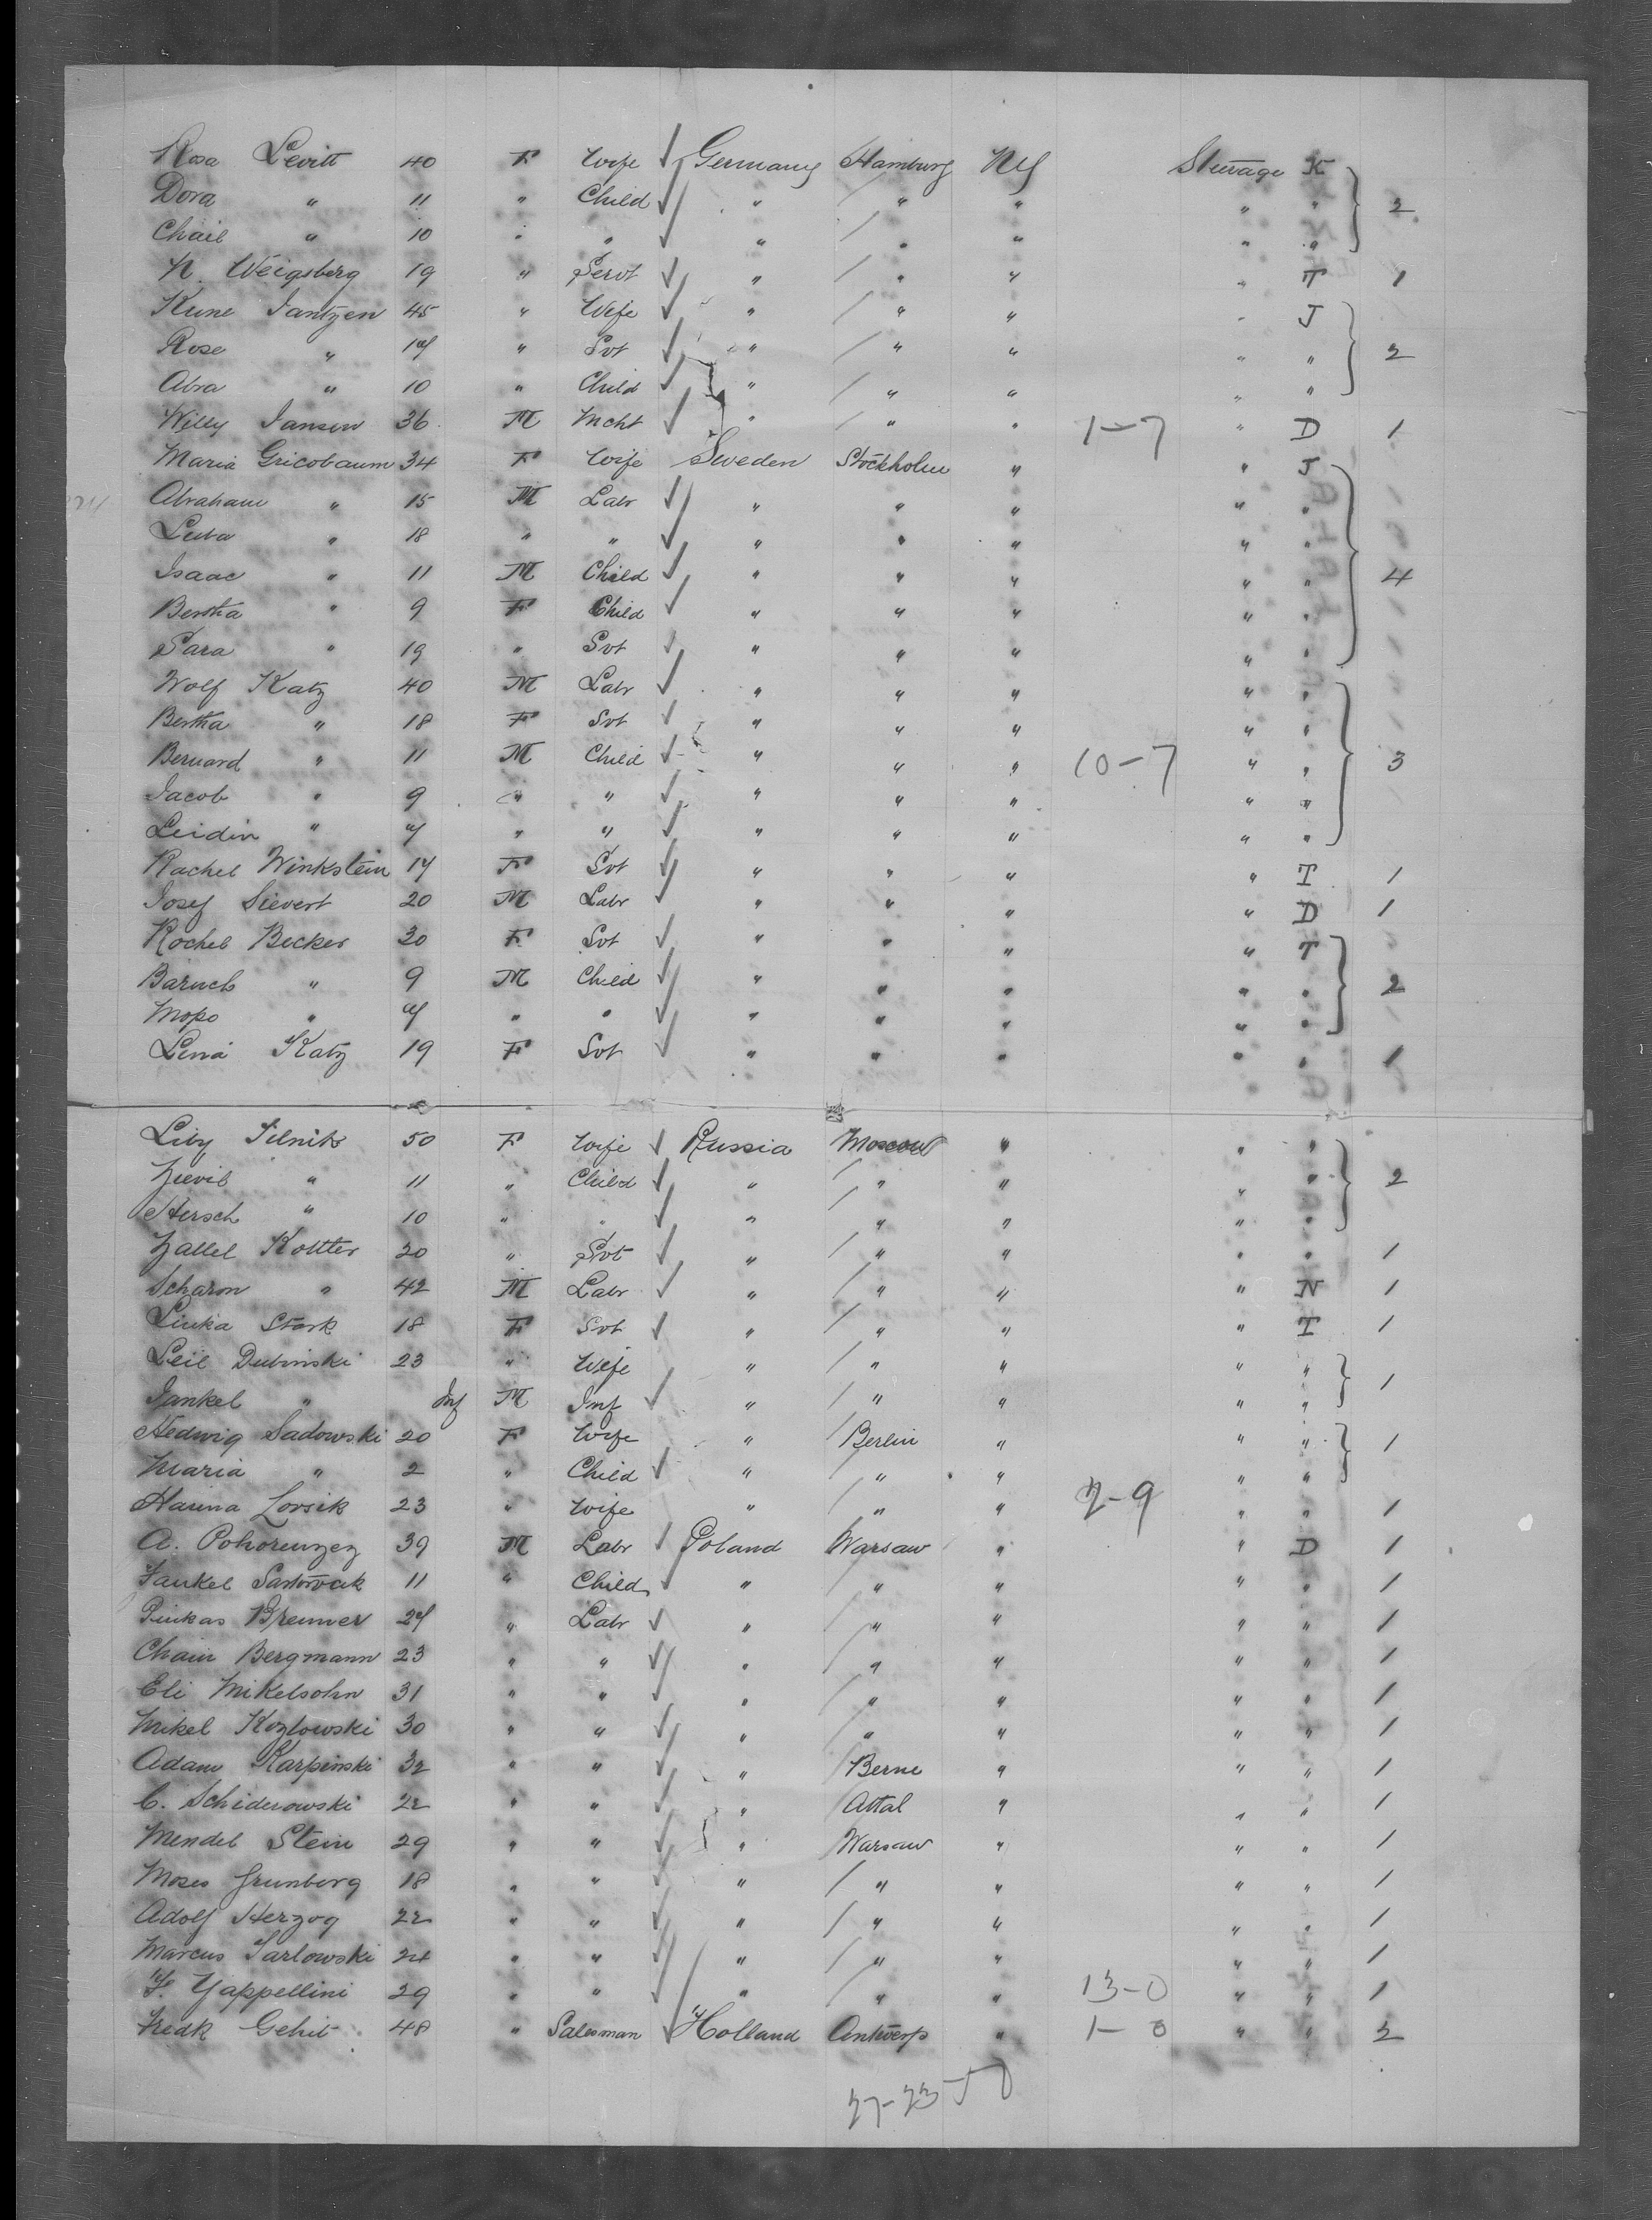 Rosa Levitt 40 F Wife ✓ Germany Hamburg NY Steerage K
Dora " 11 " Child ✓ " " " " " } 2
Chail " 10 " " ✓ " " " " "
N. Weigsberg 19 " Servt ✓ " " " " T 1
Kune Jantzen 45 " Wife ✓ " " " " J
Rose " 17 " Svt ✓ " " " " " } 2
Abra " 10 " Child ✓ " " " " "
Willy Jansen 36 M Mcht ✓ " " " 1-7 " D 1
Maria Gricobaum 34 F Wife Sweden Stockholm " " J
Abraham " 15 M Labr ✓ " " " " "
Luba " 18 " " ✓ " " " " "
Isaac " 11 M Child ✓ " " " " " } 4
Bertha " 9 F Child ✓ " " " " "
Sara " 19 " Svt ✓ " " " " "
Wolf Katz 40 M Labr ✓ " " " " "
Bertha " 18 F Svt ✓ " " " " "
Bernard " 11 M Child ✓ " " " 10-7 " " } 3
Jacob " 9 " " ✓ " " " " "
Leidin " 7 " " ✓ " " " " "
Rachel Winkstein 17 F Svt ✓ " " " " T 1
Josef Sievert 20 M Labr ✓ " " " " D 1
Rochel Becker 30 F Svt ✓ " " " " T
Baruch " 9 M Child ✓ " " " " " } 2
Mopo " 7 " " ✓ " " " " "
Lena Katz 19 F Svt ✓ " " " " " 1
Liby Silnik 50 F Wife ✓ Russia Moscow " " "
Zievil " 11 " Child ✓ " " " " " } 2
Hersch " 10 " " ✓ " " " " "
Zallel Kottler 20 " Svt ✓ " " " " " 1
Scharon " 42 M Labr ✓ " " " " N 1
Linka Stark 18 F Svt ✓ " " " " T 1
Leil Dubinski 23 " Wife " " " " "
Jankel " Inf M Inf ✓ " " " " " } 1
Hedwig Sadowski 20 F Wife " Berlin " " " } 1
Maria " 2 " Child ✓ " " " " "
Harina Lorsik 23 " Wife " " " 2-9 " " 1
A. Pohorenzez 39 M Labr ✓ Poland Warsaw " " D 1
Jankel 11 " Child ✓ " " " " " 1
Pinkas Brenner 27 " Labr ✓ " " " " " 1
Chain Bergmann 23 " " ✓ " " " " " 1
Eli Mikelsohn 31 " " ✓ " " " " " 1
Mikel Kozlowski 30 " " ✓ " " " " " 1
Adam Karpinski 32 " " ✓ " Berne " " " 1
C. Schiderowski 22 " " ✓ " Attal " " " 1
Mendel Stein 29 " " ✓ " Warsaw " " " 1
Moses Grunberg 18 " " ✓ " " " " " 1
Adolf Herzog 22 " " ✓ " " " " " 1
Marcus Jarlowski 24 " " ✓ " " " " " 1
F. Yappellini 29 " " ✓ " " " 13-0 " " 1
Fredk Gehil 48 " Salesman ✓ Holland Antwerp " 1-0 " " 2
27-23